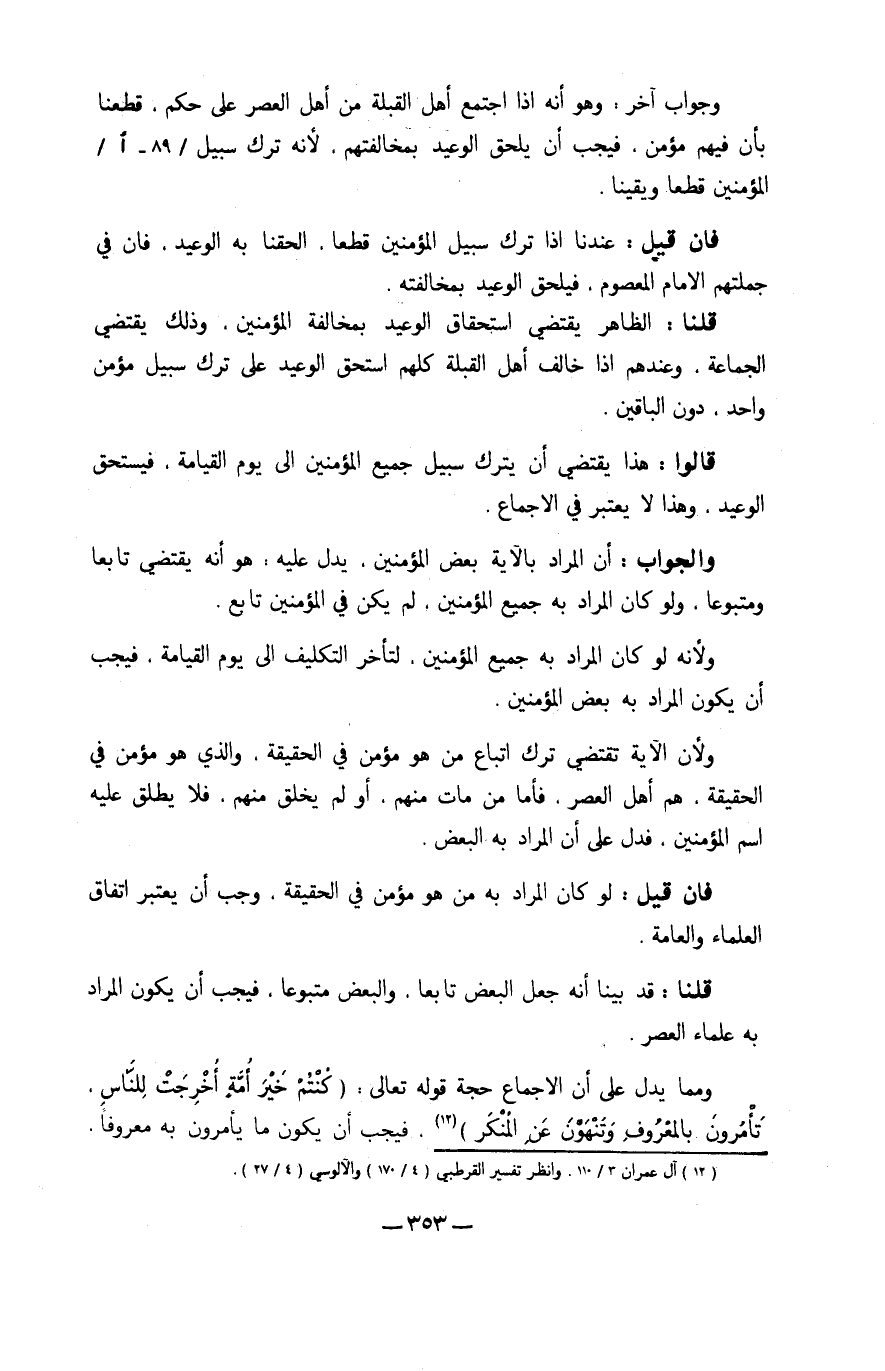 وجواب آخر : وهو أنه اذا اجتمع أهل القبلة من أهل العصر على حكم ، قطعنا
بأن فيهم مؤمن ، فيجب أن يلحق الوعيد بمخالفتهم ، لأنه ترك سبيل / ٨٩ ـ أ /
المؤمنين قطعا ويقينا .
فان قيل : عندنا اذا ترك سبيل المؤمنين قطعا ، الحقنا به الوعيد ، فان في
جملتهم الامام المعصوم ، فيلحق الوعيد بمخالفته .
قلنا : الظاهر يقتضي استحقاق الوعيد بمخالفة المؤمنين ، وذلك يقتضي
الجماعة ، وعندهم اذا خالف أهل القبلة كلهم استحق الوعيد على ترك سبيل مؤمن
واحد ، دون الباقين .
قالوا : هذا يقتضي أن يترك سبيل جميع المؤمنين الى يوم القيامة ، فيستحق
الوعيد ، وهذا لا يعتبر في الاجماع .
والجواب : أن المراد بالآية بعض المؤمنين ، يدل عليه : هو أنه يقتضي تابعا
ومتبوعا ، ولو كان المراد به جميع المؤمنين ، لم يكن في المؤمنين تابع .
ولأنه لو كان المراد به جميع المؤمنين ، لتأخر التكليف الى يوم القيامة ، فيجب
أن يكون المراد به بعض المؤمنين .
ولأن الآية تقتضي ترك اتباع من هو مؤمن في الحقيقة ، والذي هو مؤمن في
الحقيقة ، هم أهل العصر ، فأما من مات منهم ، أو لم يخلق منهم ، فلا يطلق عليه
اسم المؤمنين ، فدل على أن المراد به البعض .
فان قيل : لو كان المراد به من هو مؤمن في الحقيقة ، وجب أن يعتبر اتفاق
العلماء والعامة .
قلنا : قد بينا أنه جعل البعض تابعا ، والبعض متبوعا ، فيجب أن يكون المراد
به علماء العصر .
ومما يدل على أن الاجماع حجة قوله تعالى : ( كُنْتُمْ خَيْرَ أُمَّةٍ أُخْرِجَتْ لِلنَّاسِ ،
تَأْمُرونَ بالمَعْرُوفِ وَتَنْهَوْنَ عَنِ المُنْكَرِ )(١٢) ، فيجب أن يكون ما يأمرون به معروفاً ،
( ١٢ ) آل عمران ٣ / ١١٠ . وانظر تفسير القرطبي ( ٤ / ١٧٠ ) والآلوسي ( ٤ / ٢٧ ) .
ـ ٣٥٣ ـ